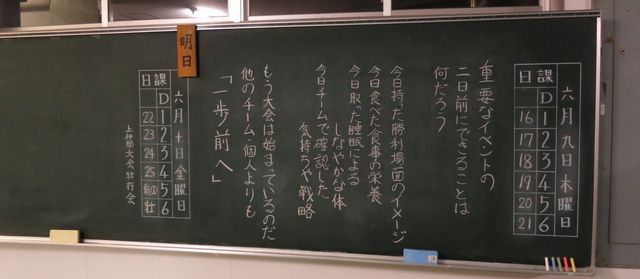 六月九日木曜日
課 D 1 2 3 4 5 6
日 16 17 18 19 20 21
重要なイベントの
二日前にできることは
何だろう
今日持った勝利場面のイメージ
今日食べた食事の栄養
今日取った睡眠による
しなやかな体
今日チームで確認した
気持ちや戦略
もう大会は始まっているのだ
他のチーム、個人よりも
「一歩前へ」
明日
六月十日金曜日
課 D 1 2 3 4 5 6
日 22 23 24 25 壮
上伊那大会壮行会